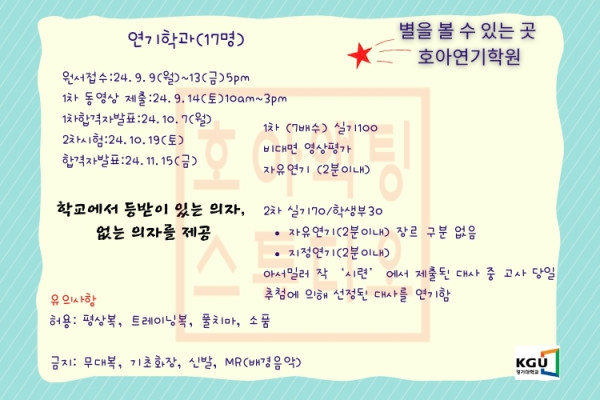 연기학과(17명)
별을 볼 수 있는 곳
호아연기학원
원서접수:24. 9. 9(월)~13(금)5pm
1차 동영상 제출:24. 9.14(토)10am~3pm
1차합격자발표:24.10.7(월)
2차시험:24.10.19(토)
합격자발표:24.11.15(금)
1차 (7배수) 실기100
비대면 영상평가
자유연기 (2분이내)
학교에서 등받이 있는 의자,
없는 의자를 제공
2차 실기70/학생부30
• 자유연기(2분이내) 장르 구분 없음
• 지정연기(2분이내)
아서밀러 작 '시련' 에서 제출된 대사 중 고사 당일
추첨에 의해 선정된 대사를 연기함
유의사항
허용: 평상복, 트레이닝복, 풀치마, 소품
금지: 무대복, 기초화장, 신발, MR(배경음악)
호아액팅
스튜디오
KGU
경기대학교